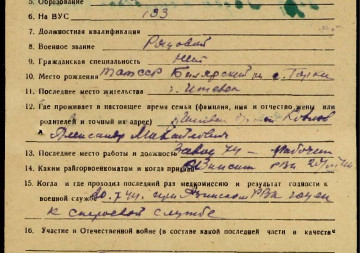 5. Образование
6. На ВУС 133
7. Должностная квалификация
8. Военное звание Рядовой
9. Гражданская специальность Нет
10. Место рождения Татсср Билярский р-н с.
11. Последнее место жительства г. Ижевск
12. Где проживает в настоящее время семья (фамилия, имя и отчество жены или
родителей и точный их адрес)
Александр Михайлович
13. Последнее место работы и должность Завод 74 — рабочий
14. Каким райгорвоенкоматом и когда призван РВК
15. Когда и где проходил последний раз медкомиссию и результат годности к
военной службе 20.7.44. при РВК годен
к строевой службе
16. Участие в Отечественной войне (в составе какой последней части и качестве